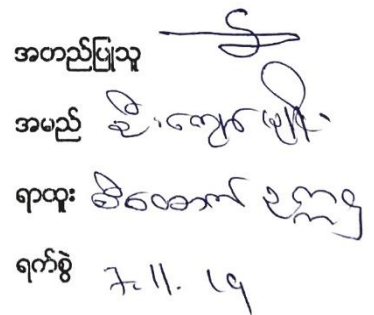 အတည်ပြုသူ
အမည် ဦးကျော်မျိုး
ရာထူး ဒီထောက် ဥက္ကဋ္ဌ
ရက်စွဲ 7.11.19